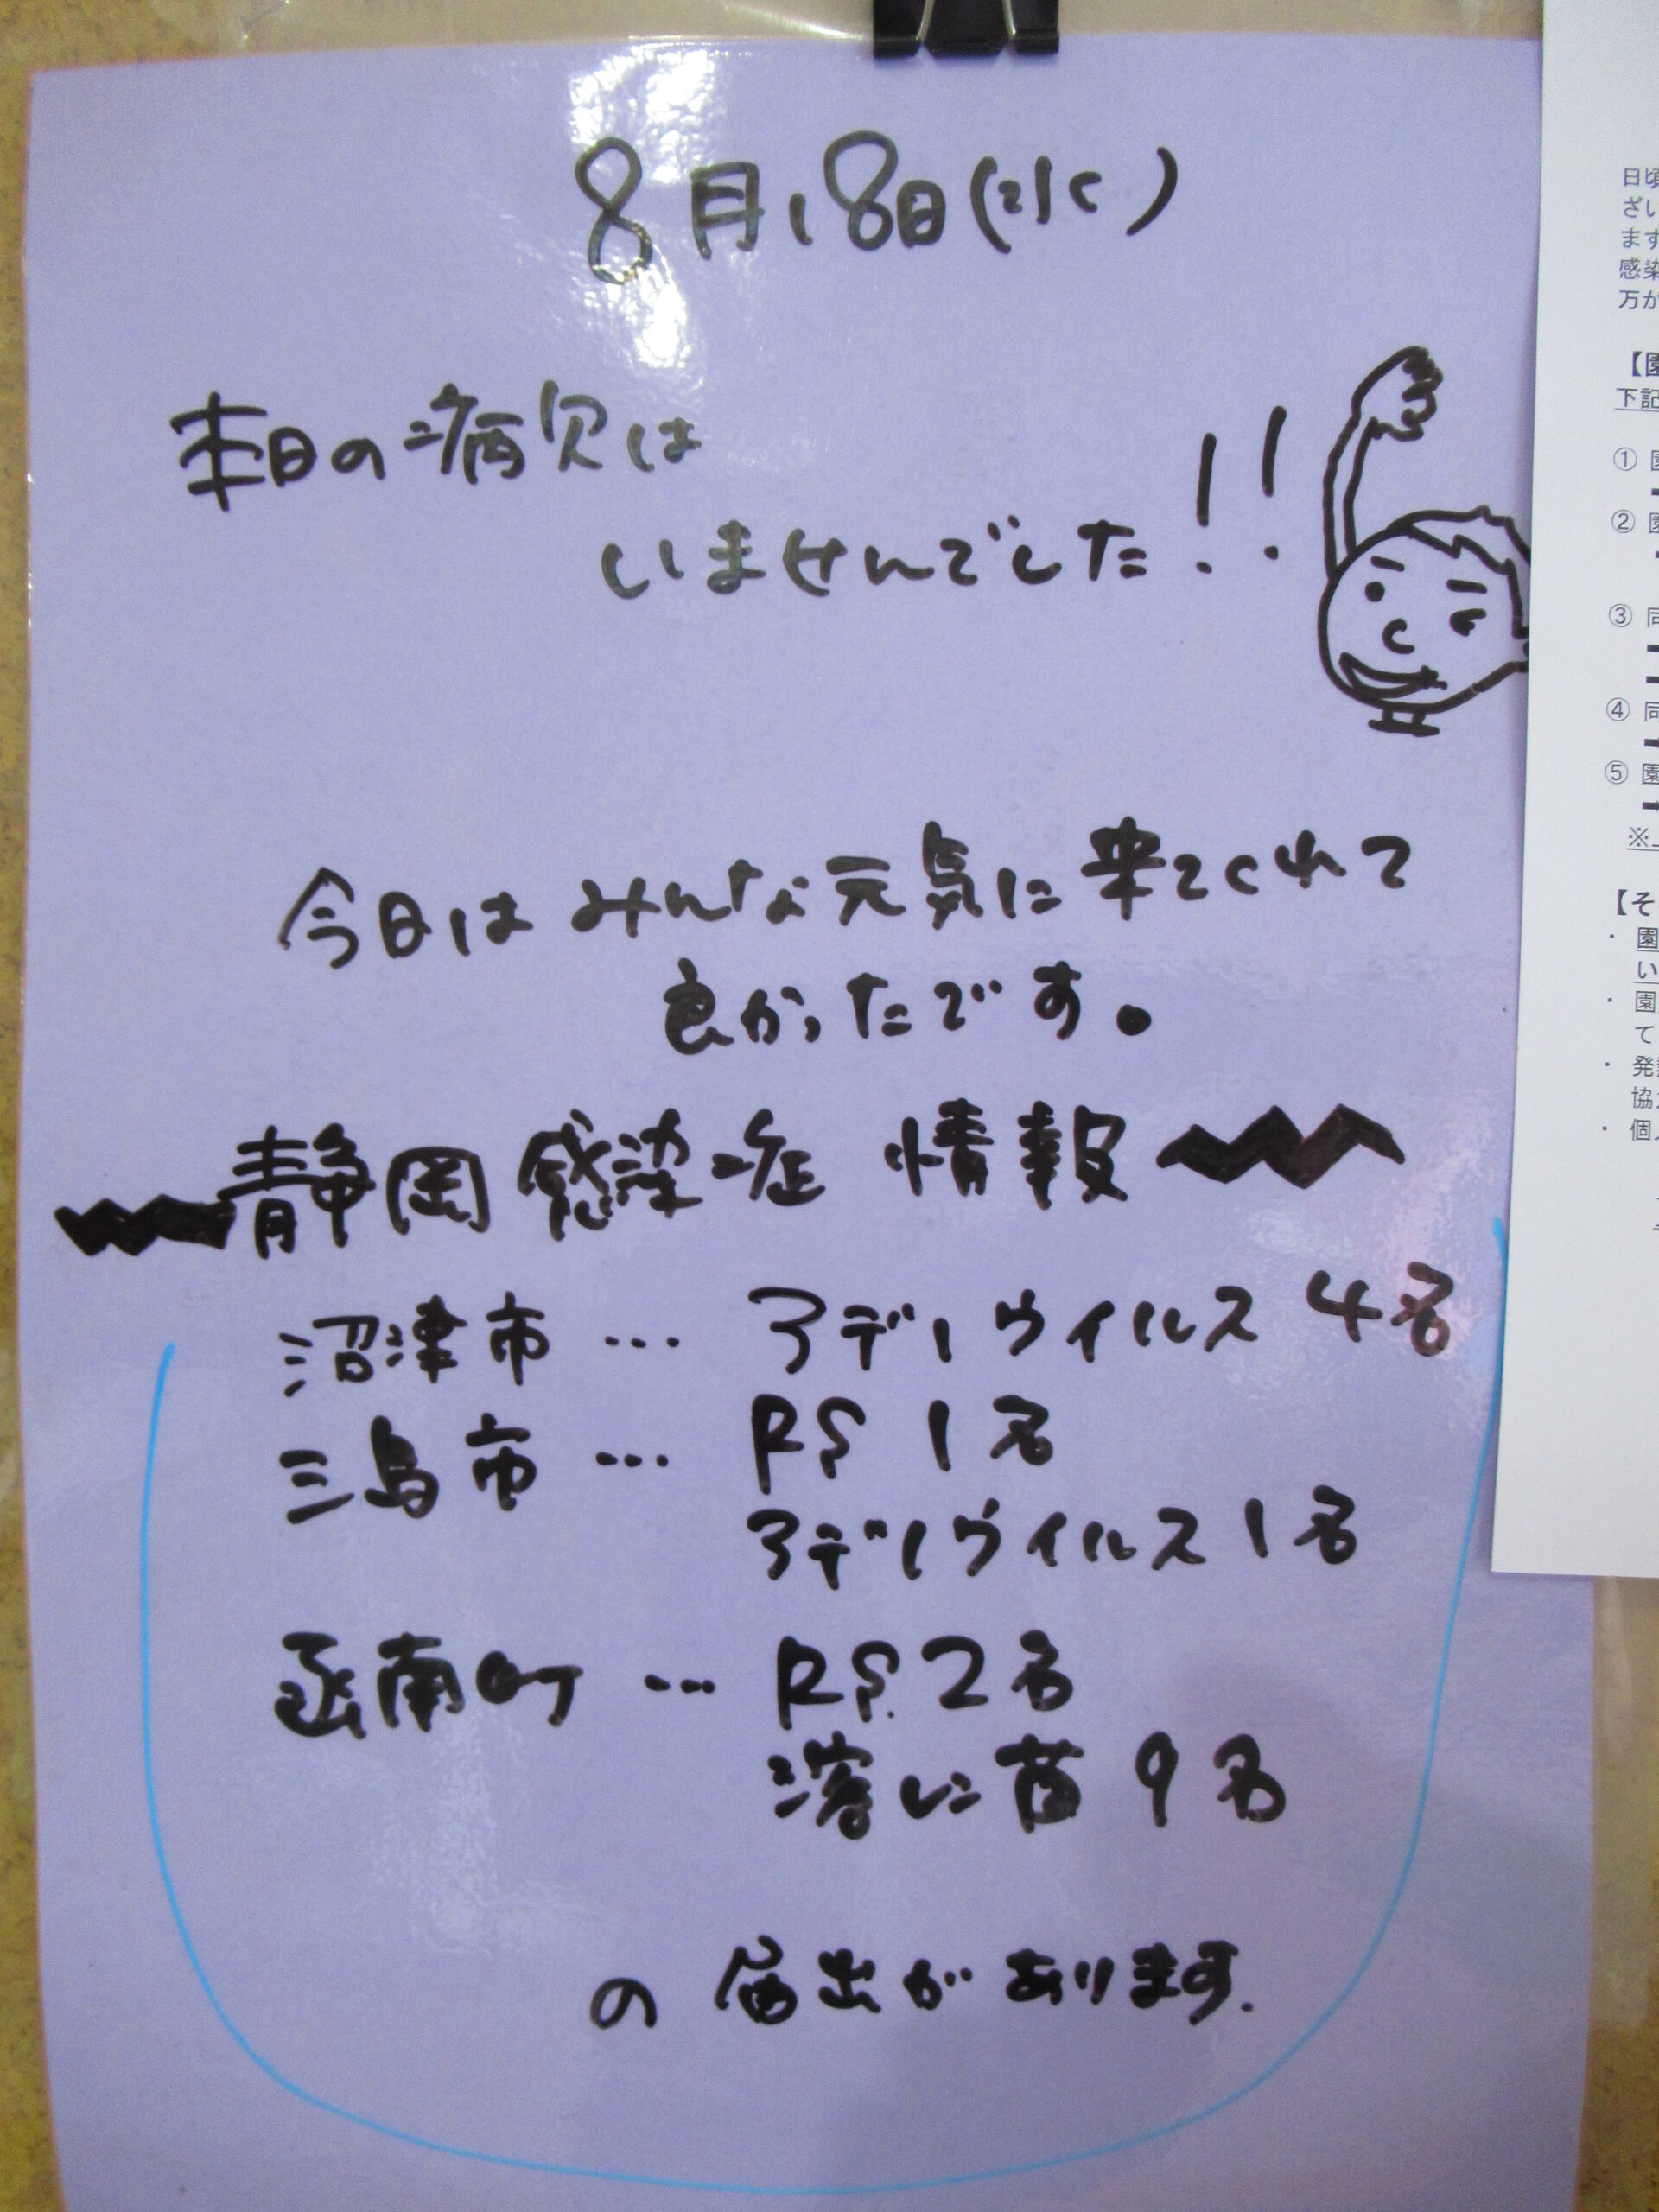 8月18日(水)
本日の病欠は
いませんでした!!
今日はみんな元気に来てくれて
良かったです。
静岡感染症 情報
沼津市 … アデノウイルス 4名
三島市 … RS 1名
アデノウイルス 1名
函南町 … RS 2名
溶レン菌 9名
の 届出が あります.
日頃
ざい
ます
感染
万が
【園
下記
① 園
② 園
③ 同
④ 同
⑤ 園
※
【そ
・ 園
い
・ 園
て
・ 発熱
協力
・ 個人